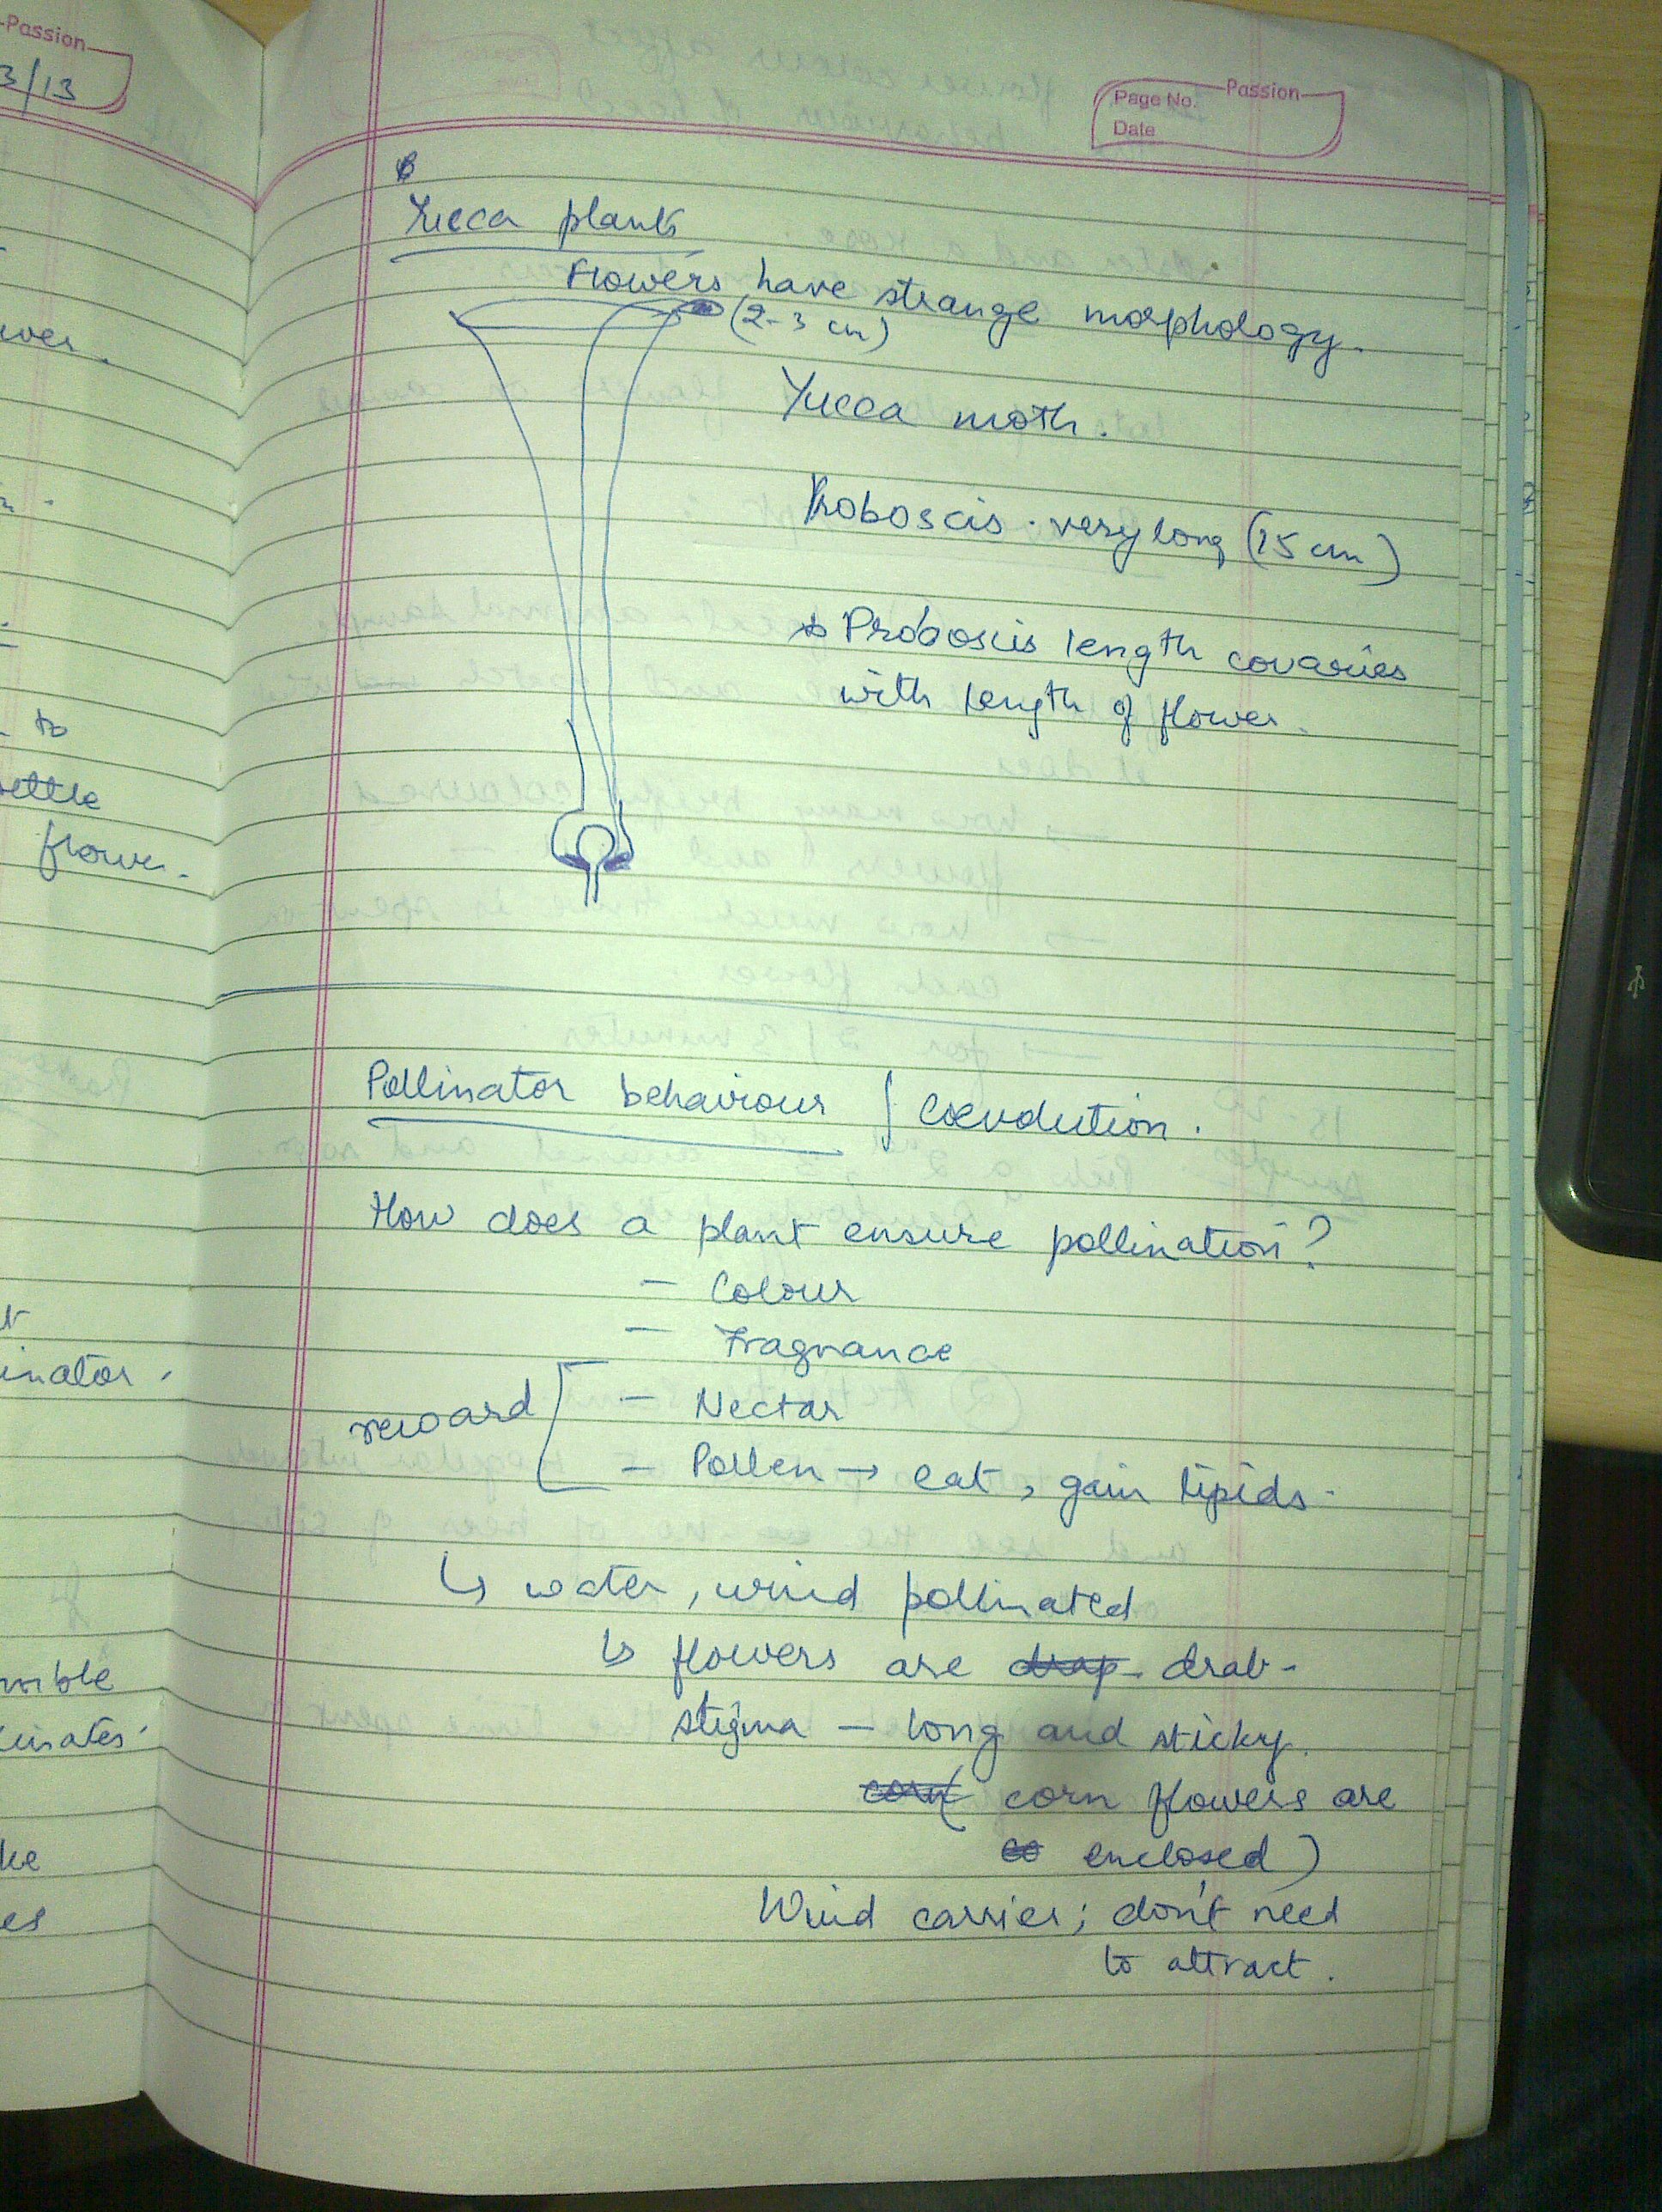 Passion
3/13
wer.
to
settle
flower.
inator.
ke
es
Page No.
Passion
Date
Yucca plants
Flowers have strange morphology.
(2-3 cm)
Yucca moth.
Proboscis. very long (15 cm)
Proboscis length covaries
with length of flower.
Pollinator behaviour / Coevolution.
How does a plant ensure pollination?
- Colour
- Fragnance
reward
- Nectar
- Pollen → eat, gain lipids.
↳ water, wind pollinated
↳ flowers are drap drab.
stigma - long and sticky.
corn( corn flowers are
co enclosed)
Wind carrier; don't need
to attract.